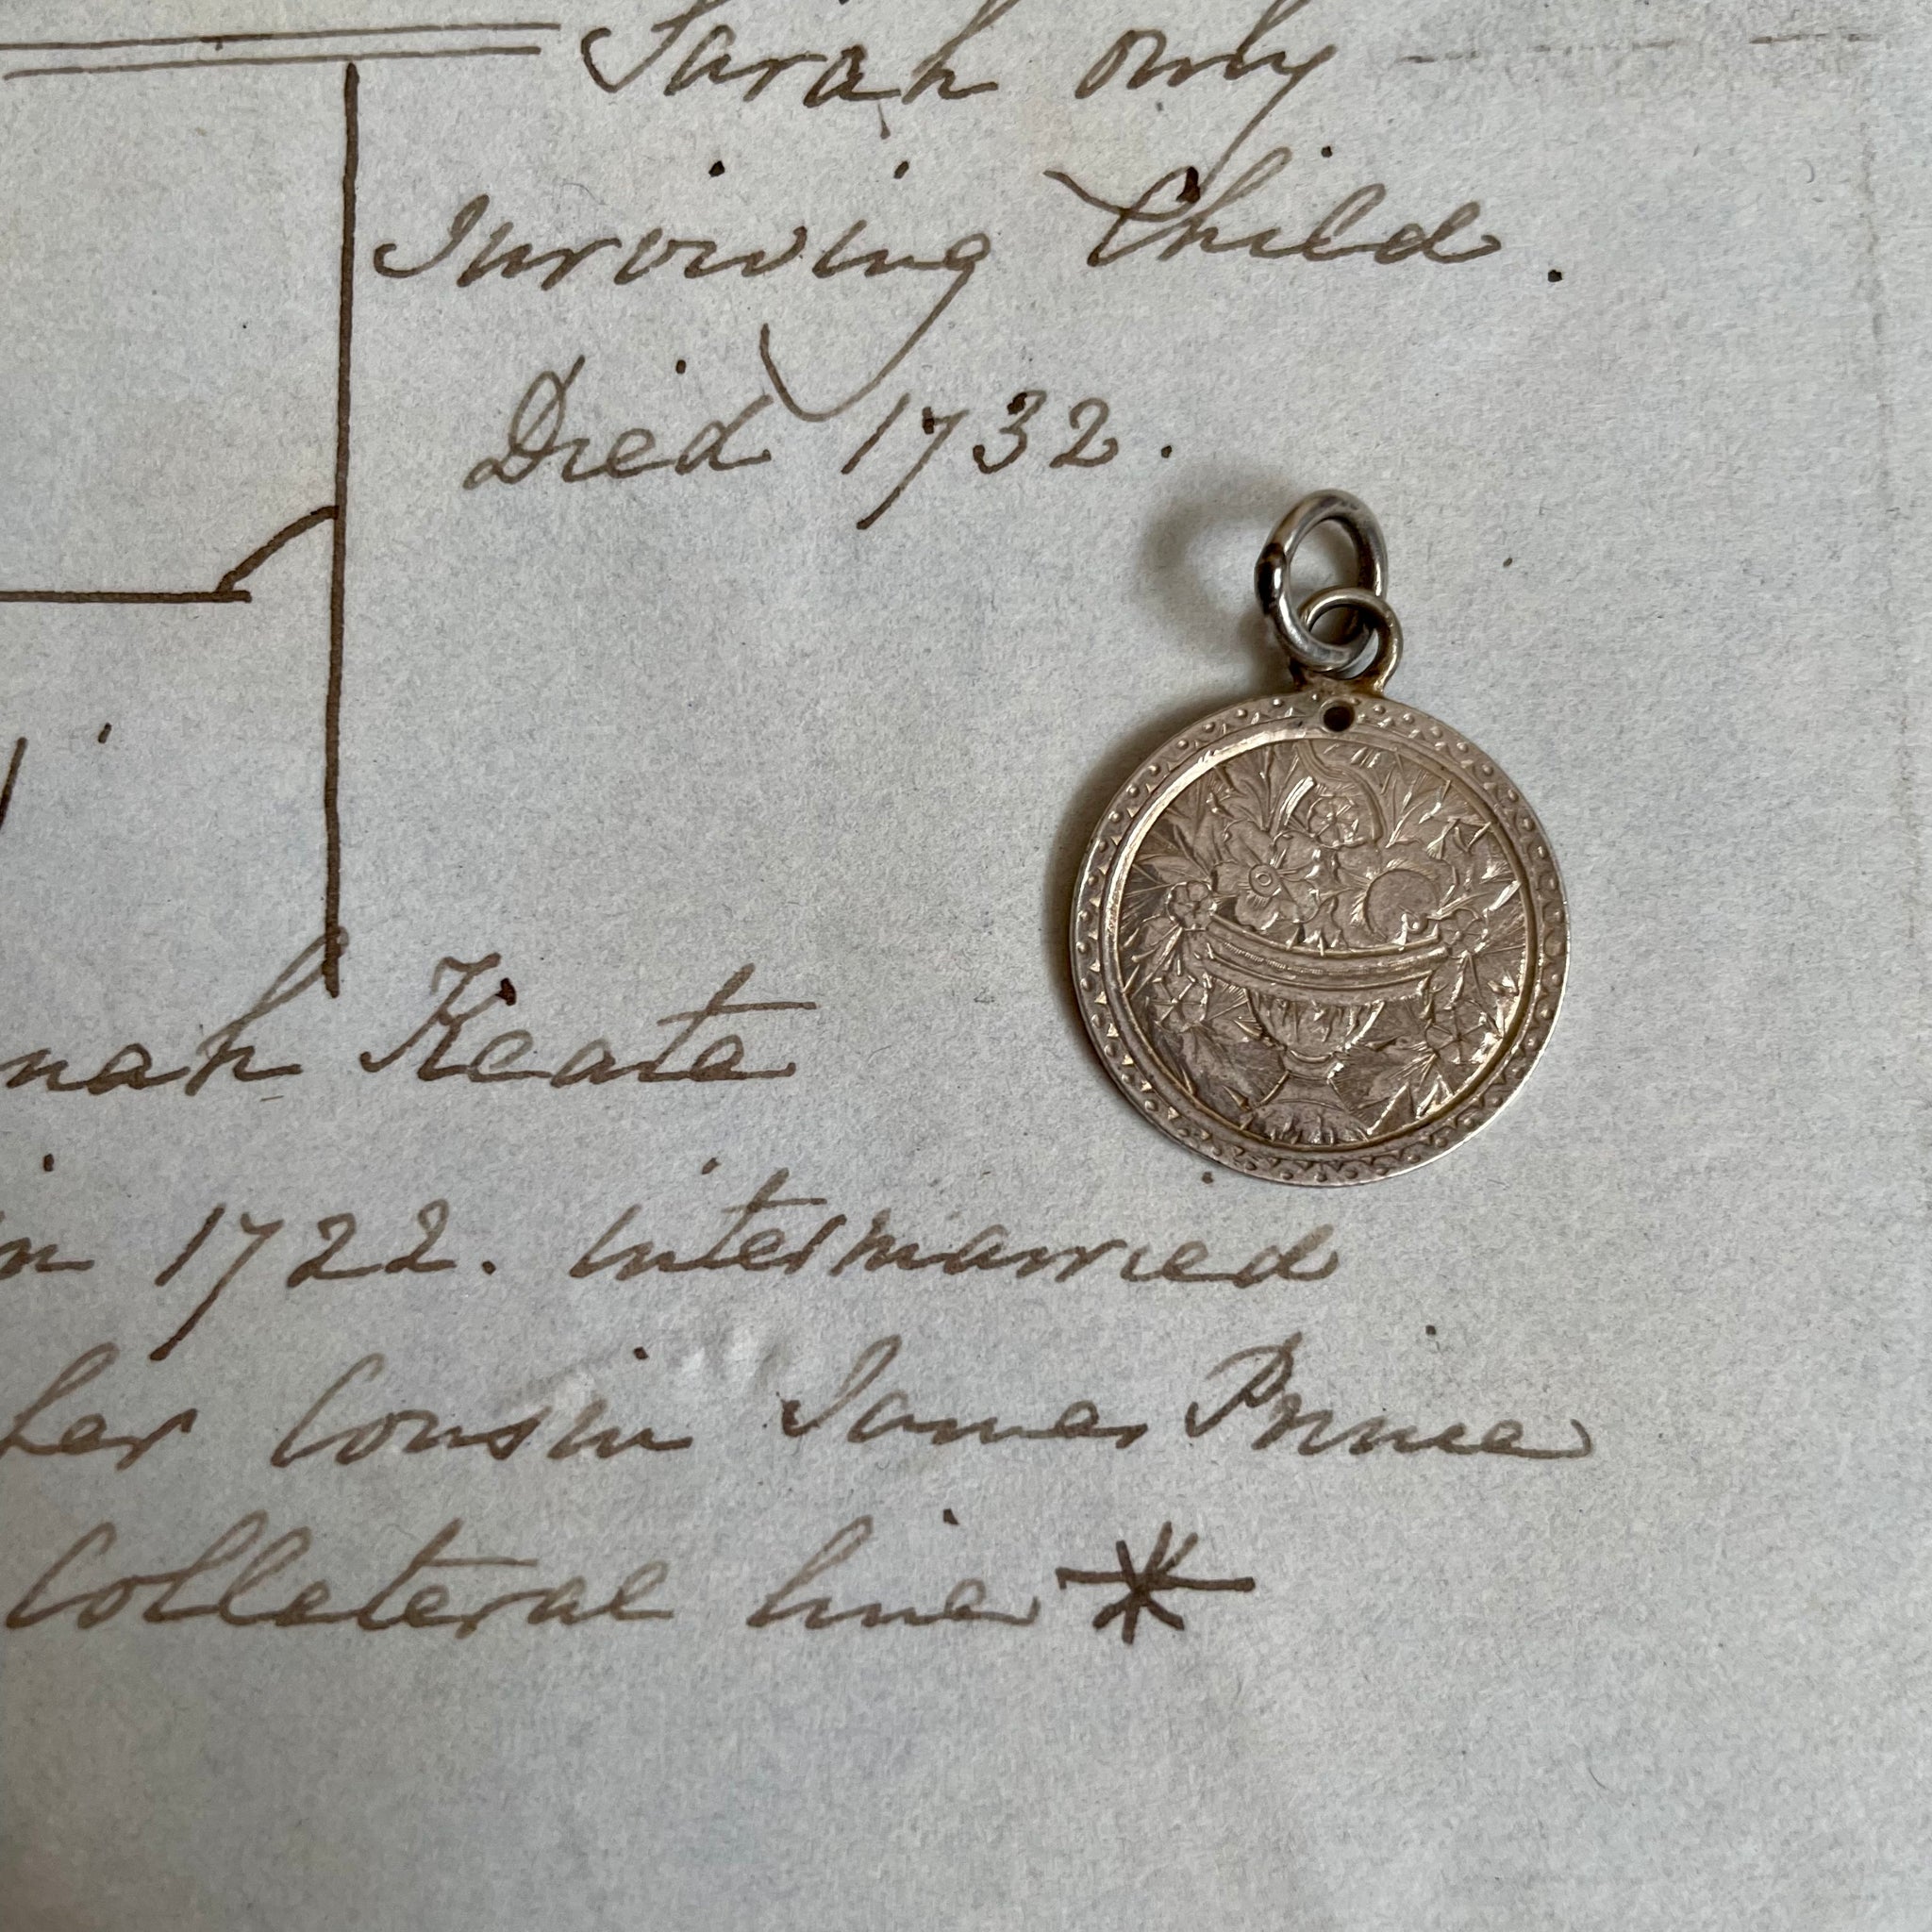 Sarah only
Surviving Child.
Died 1732.
nah Keate
in 1722. intermarried
her Cousin James Prince
Collateral line *